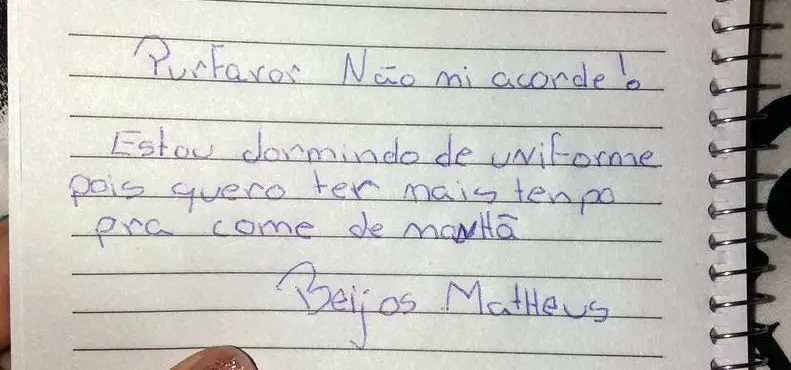 Purfavor Não mi acorde!
Estou dormindo de uniforme
pois quero ter mais tenpo
pra come de manhã
Beijos Matheus